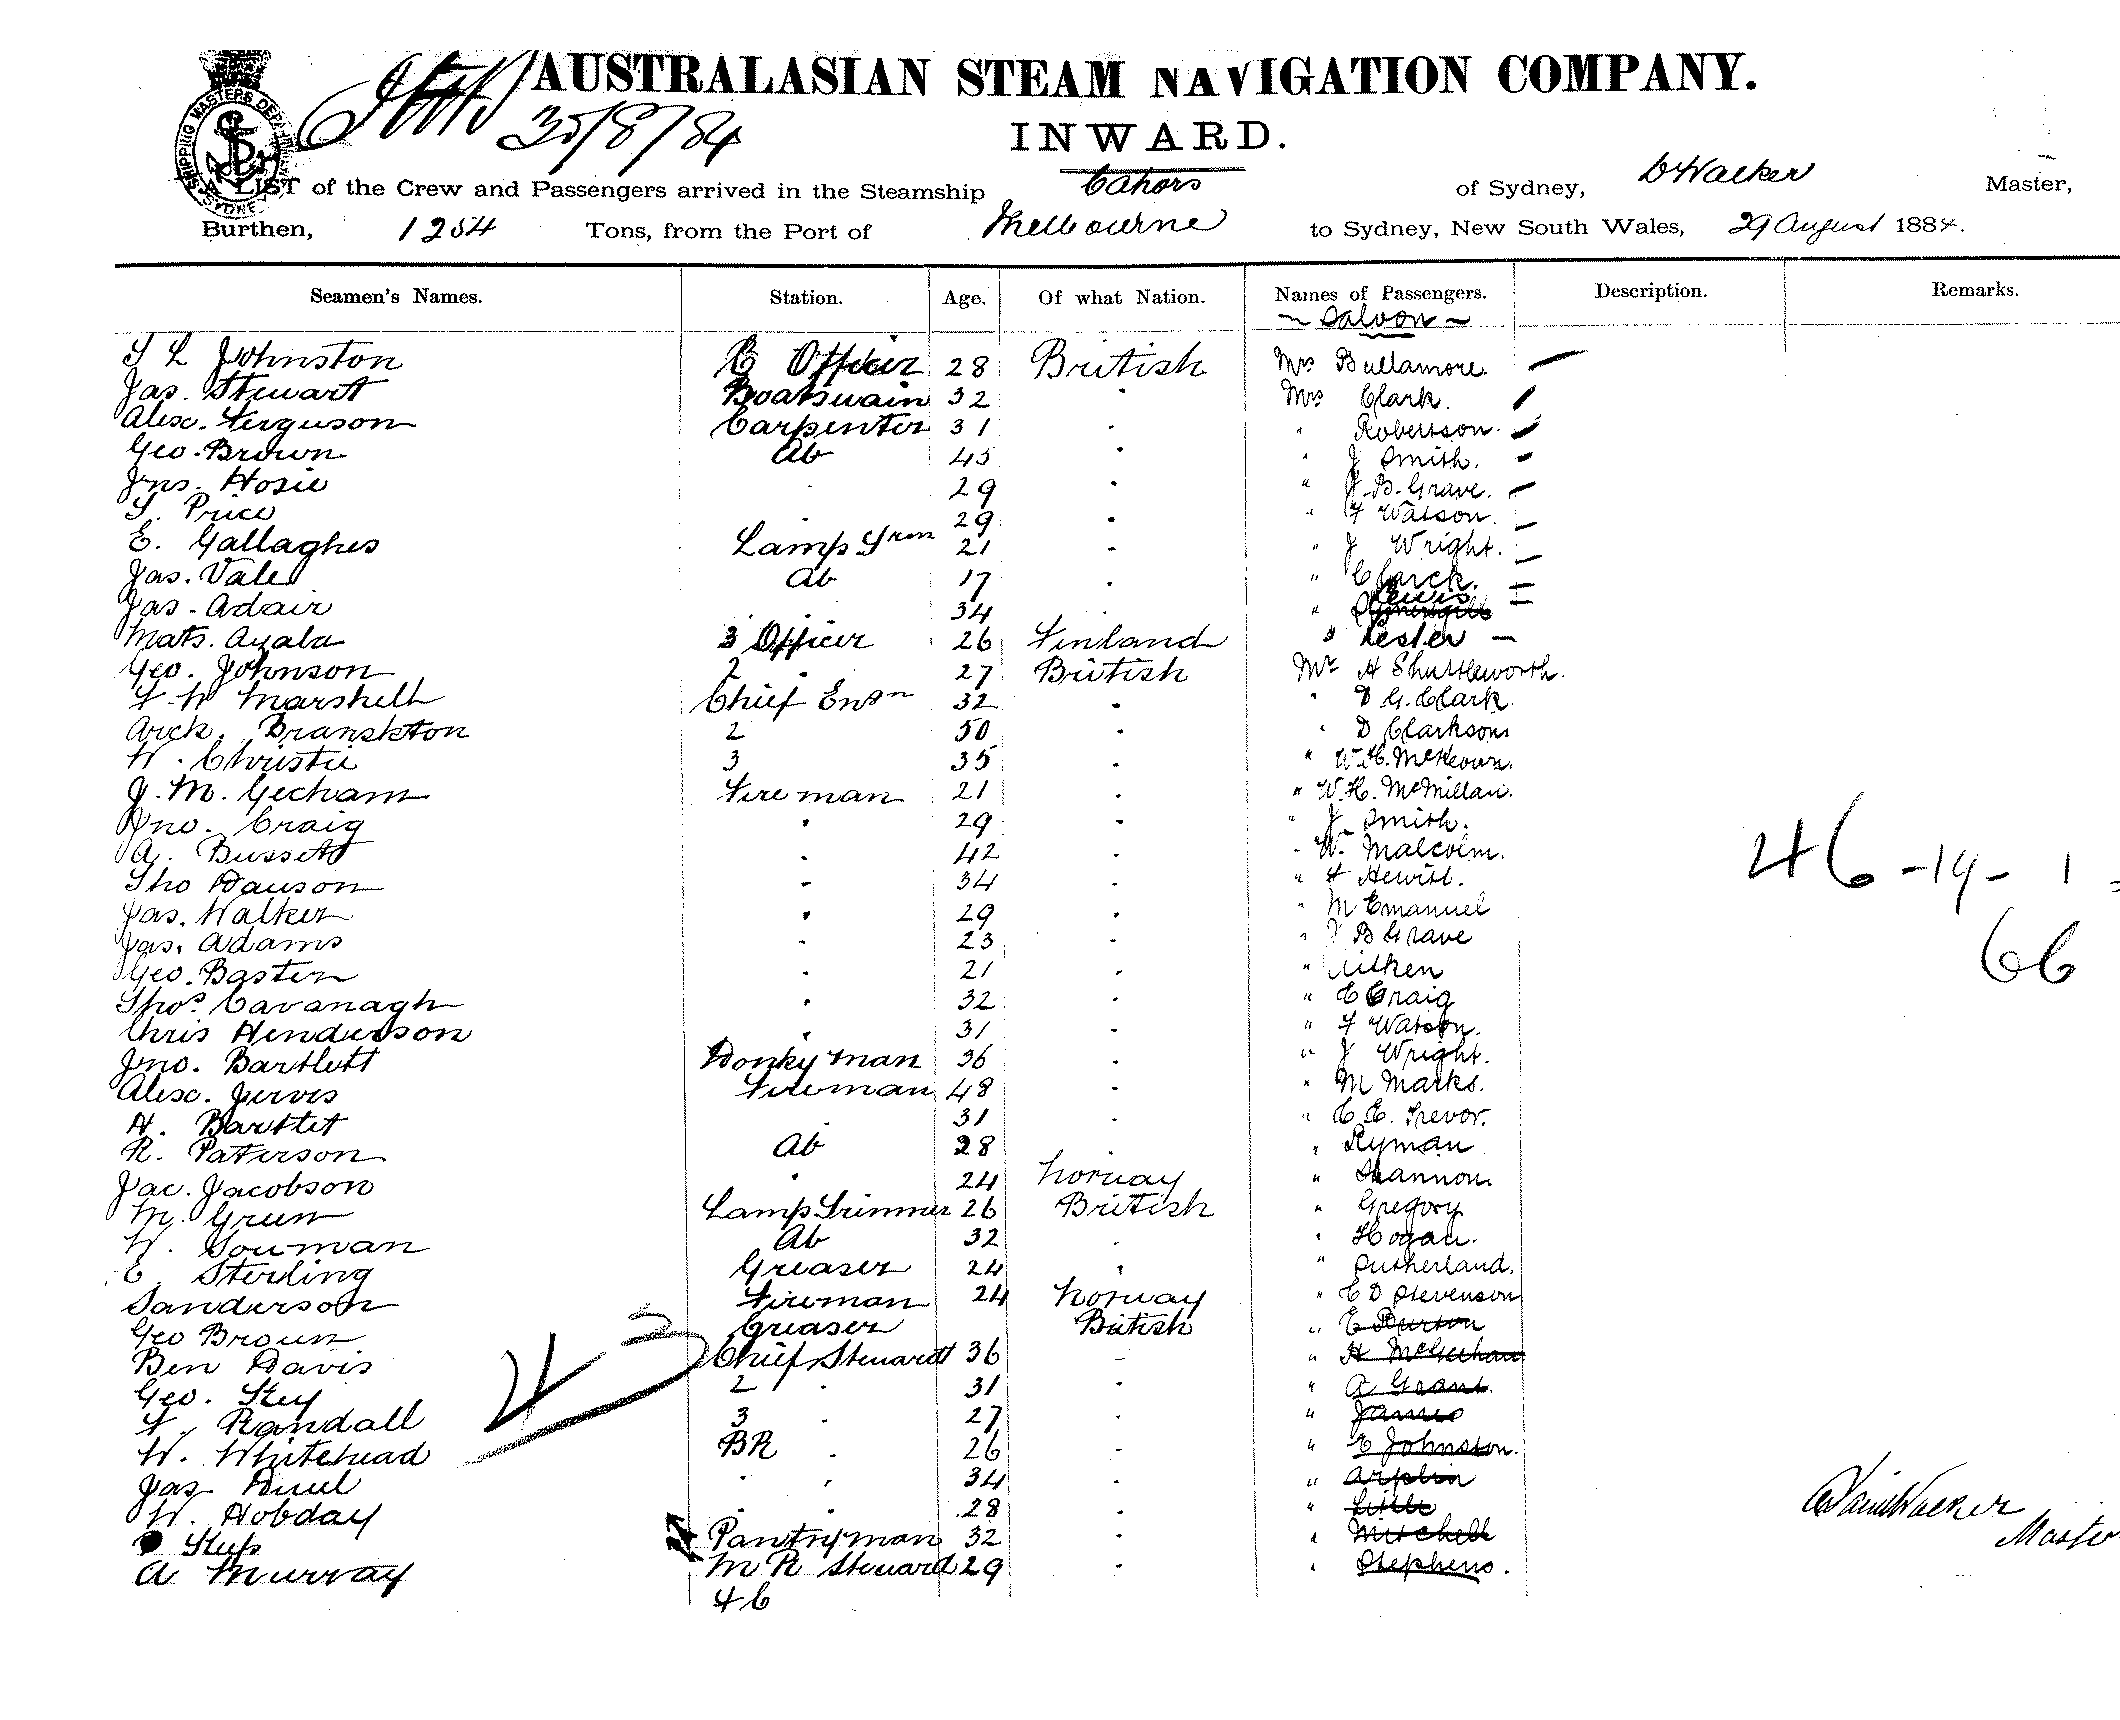 AUSTRALASIAN STEAM NAVIGATION COMPANY.
30/8/84
INWARD.
SHIPPING MASTERS DEPARTMENT SYDNEY
A LIST of the Crew and Passengers arrived in the Steamship Cahors of Sydney, D Walker Master,
Burthen, 1254 Tons, from the Port of Melbourne to Sydney, New South Wales, 29 August 1884.
Seamen's Names. Station. Age. Of what Nation. Names of Passengers. Description. Remarks.
~ Saloon ~
S L Johnston C Officer 28 British Mrs Bullamore
Jas. Stewart Boatswain 32 " Mrs Clark.
Alex. Ferguson Carpenter 31 " " Robertson.
Geo. Brown Ab 45 " " J Smith.
Jns. Hosie " 29 " " J. B. Grave.
S. Price " 29 " " F Watson.
E. Gallaghes Lamp Trm 21 " " J Wright.
Jas. Vale Ab 17 " " Clarck.
Jas. Adair 34 " " Lewis
Mats. Ayala 3 Officer 26 Finland " Lester
Geo. Johnson 2 " 27 British Mr A Shuttleworth.
F W Marshell Chief Engn 32 " " D G. Clark.
Arck. Branskton 2 50 " " D Clarkson
W. Christie 3 35 " " W. H. McKeown.
J. M. Gecham Fire man 21 " " W. H. McMillan.
Jno. Craig " 29 " " J Smith.
A. Bussett " 42 " " W. Malcolm.
Tho Dauson " 34 " " F Hewitt.
Jas. Walker " 29 " " M Emanuel
Jas. Adams " 23 " " J B Grave
Geo. Basten " 21 " " Aitken
Thos. Cavanagh " 32 " " C Craig
Chris Henderson " 31 " " F Watson.
Jno. Bartlett Donky man 36 " " J Wright.
Alex. Jervis Fireman 48 " " M Marks.
H. Bartlet " 31 " " E. E. Trevor.
R. Paterson Ab 28 " " Ryman
Jac. Jacobson " 24 Norway " Shannon.
M. Grun Lamp Trimmer 26 British " Gregory
W. Souman Ab 32 " " Hogan.
C Sterling Greaser 24 " " Sutherland.
Sanderson Fireman 24 Norway " E D Stevenson
Geo Broun Greaser British " E Burton
Ben Davis Chief Steuardt 36 " " H McGechan
Geo. Stey 2 " 31 " " A Grant.
F. Randall 3 " 27 " " James
W. Whitehead BR " 26 " " E Johnston.
Jas " " 34 " "
W. Hobday " " 28 " " Little
Pantryman 32 " " Mitchell
A Murray M R Steuard 29 " " Stephens.
46
46 - 19 - 1 =
66
David Walker
Master